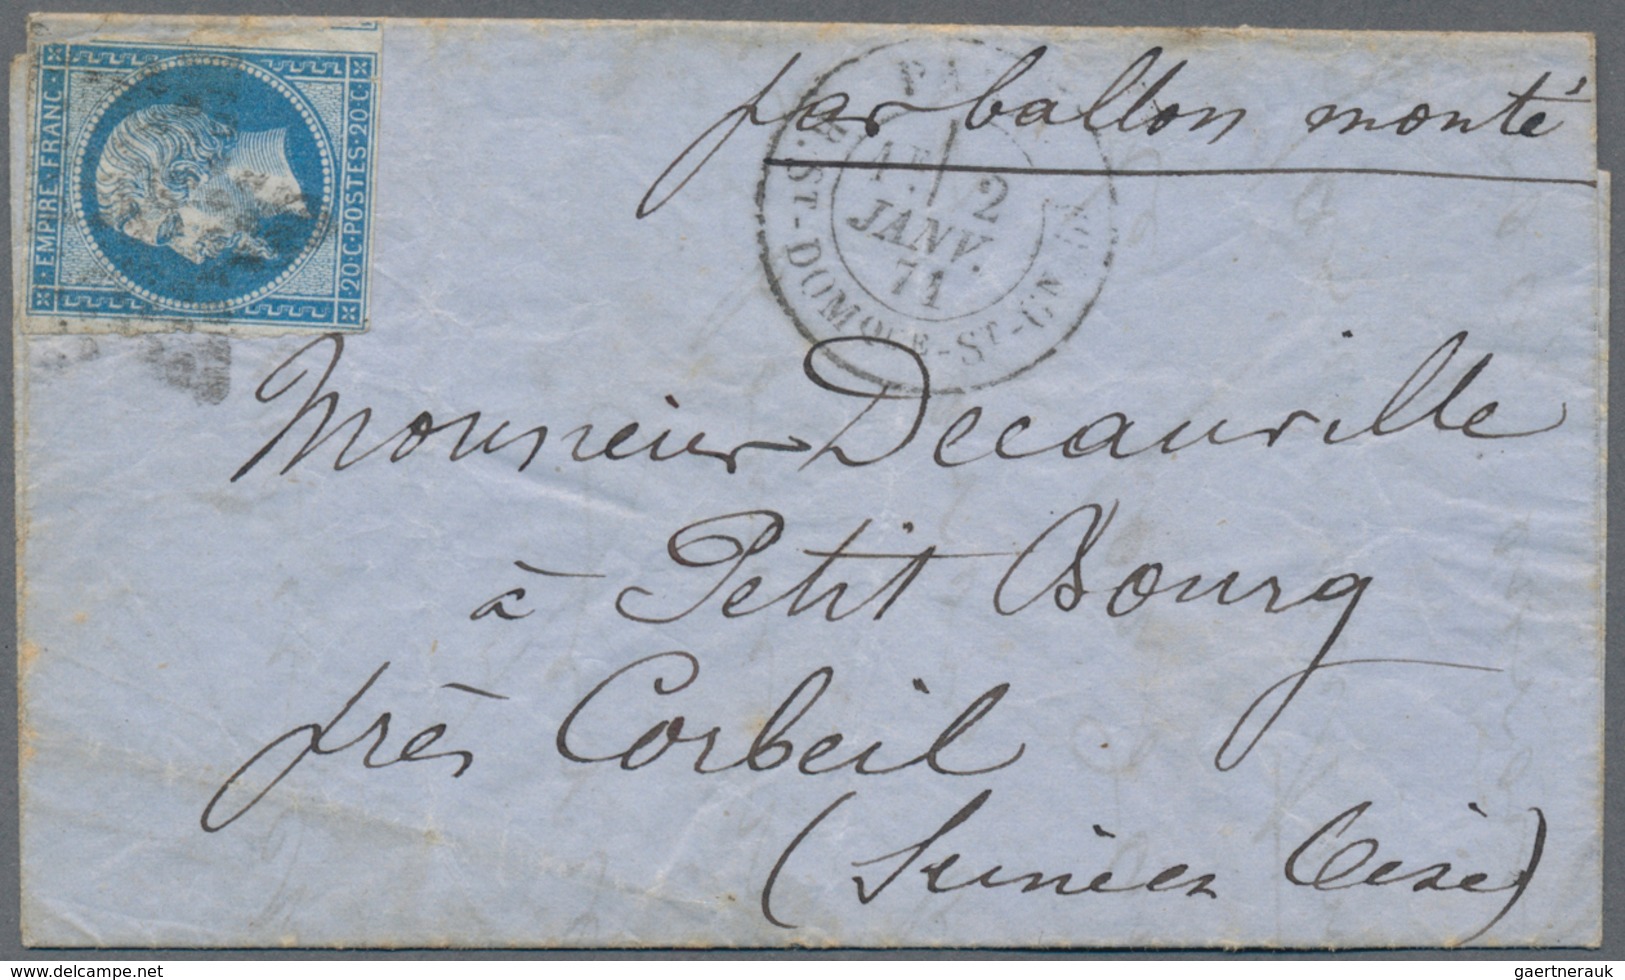 par ballon monté
EMPIRE·FRANC·
20·C·POSTES·20·C·
2
JANV.
71
R. ST-DOMQUE-ST-GN
Monsieur Decauville
à Petit Bourg
près Corbeil
(Seine et Oise)
www.delcampe.net
gaertnerauk